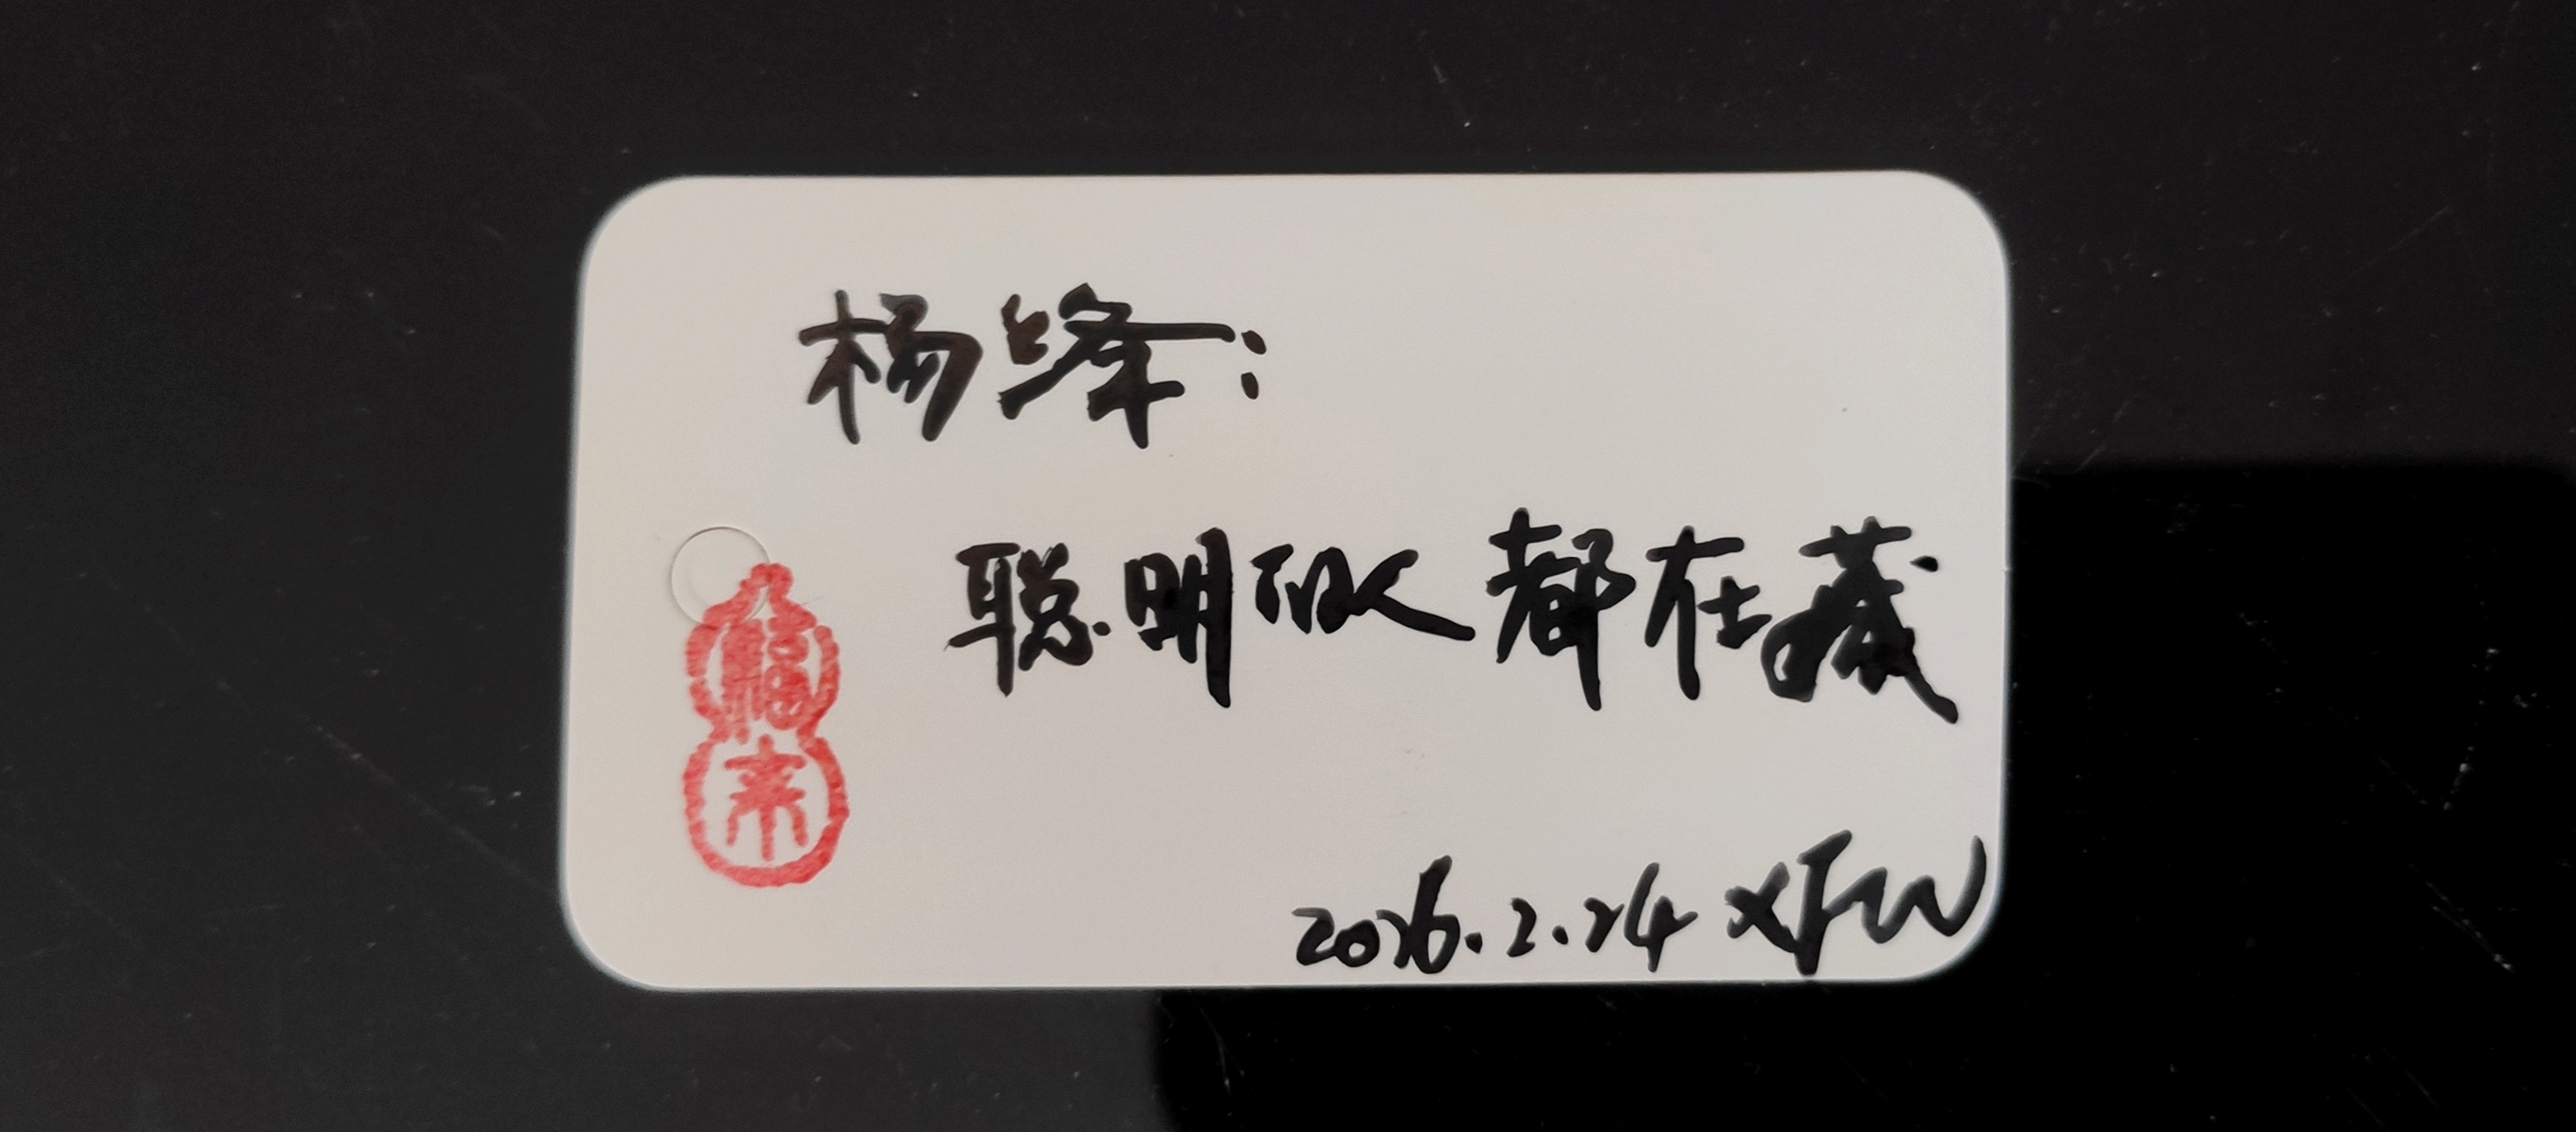 杨绛:
聪明的人都在藏
福
来
2026.2.24 XFW